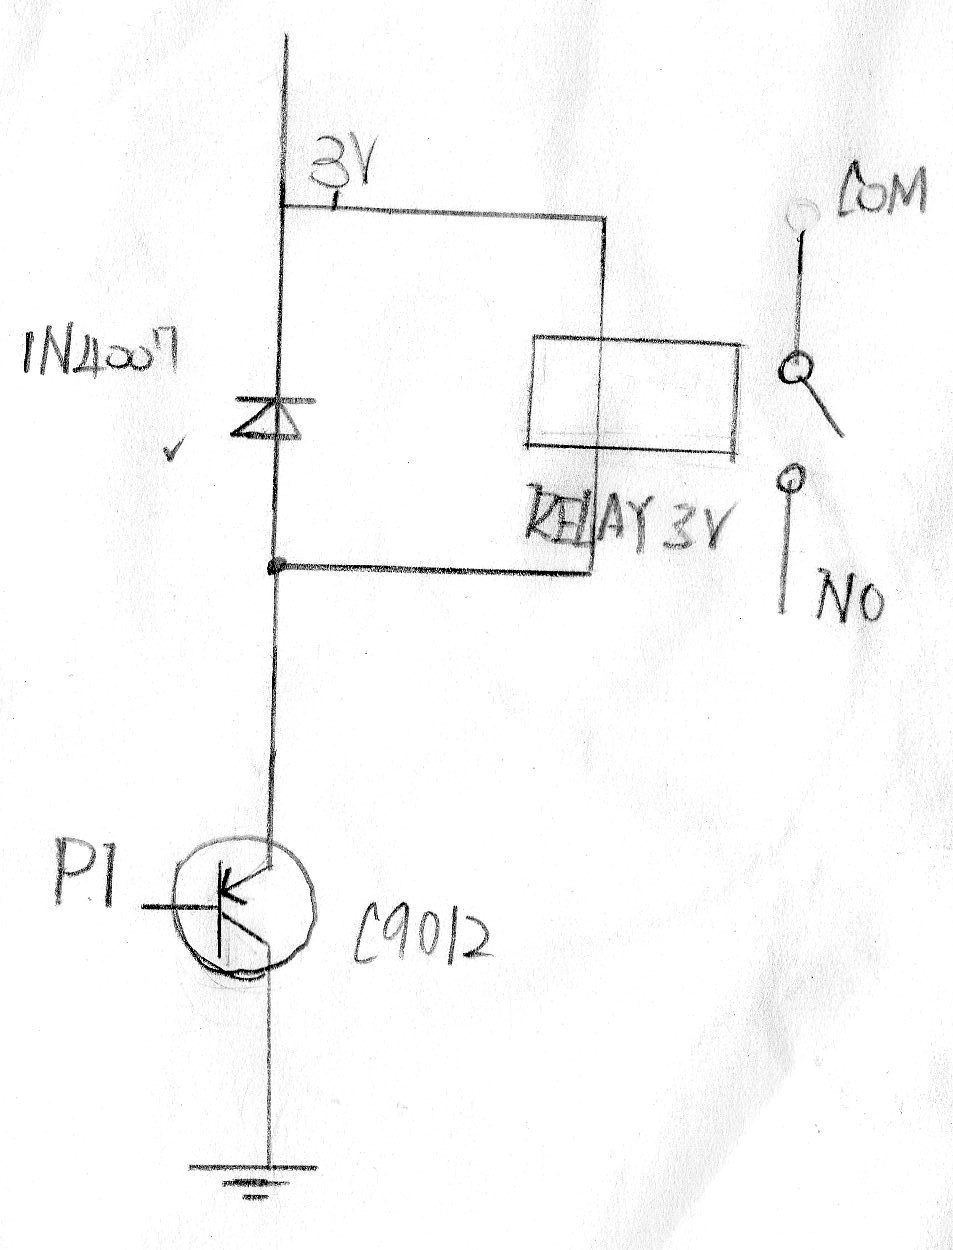 3V
COM
1N4007
RELAY 3V
NO
P1
C9012